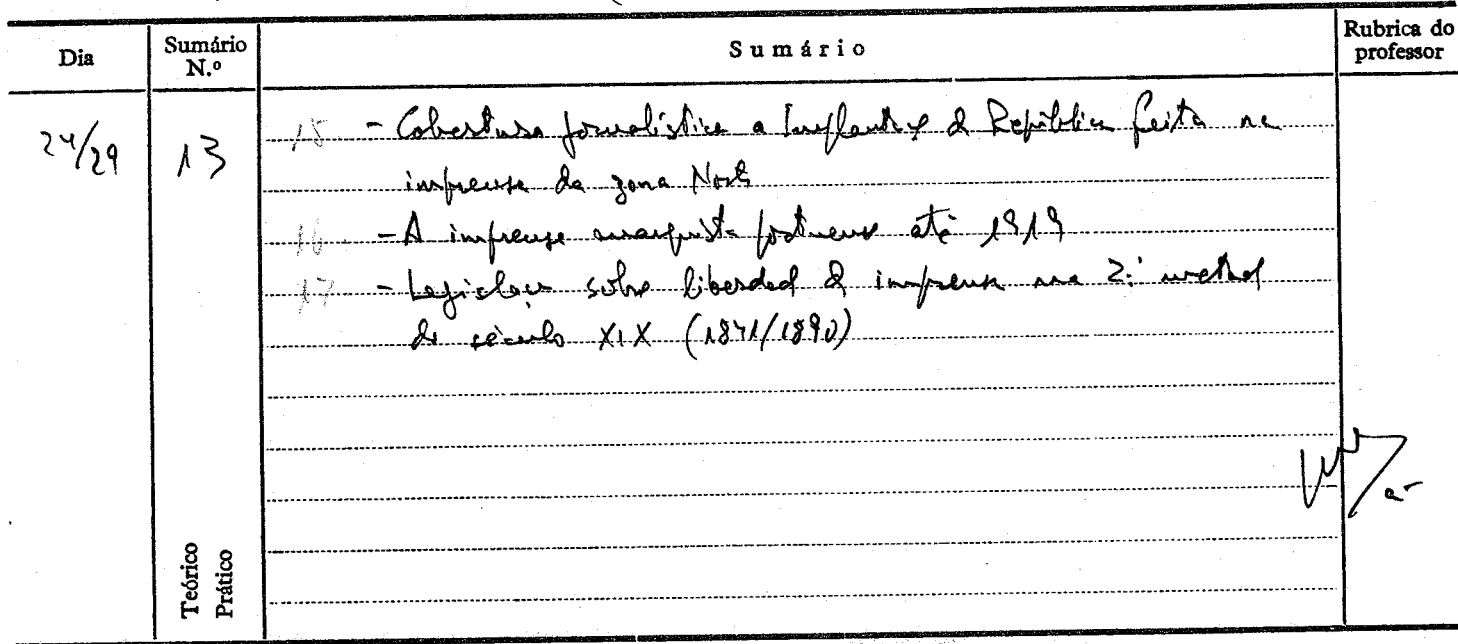 Dia
Sumário N.º
Sumário
Rubrica do professor
24/29
13
15 - Cobertura jornalística a Implantação da República feita na
imprensa da zona Norte
16 - A imprensa anarquista portuense até 1919
17 - Legislação sobre liberdade de imprensa na 2.ª metade
do século XIX (1841/1890)
Teórico
Prático